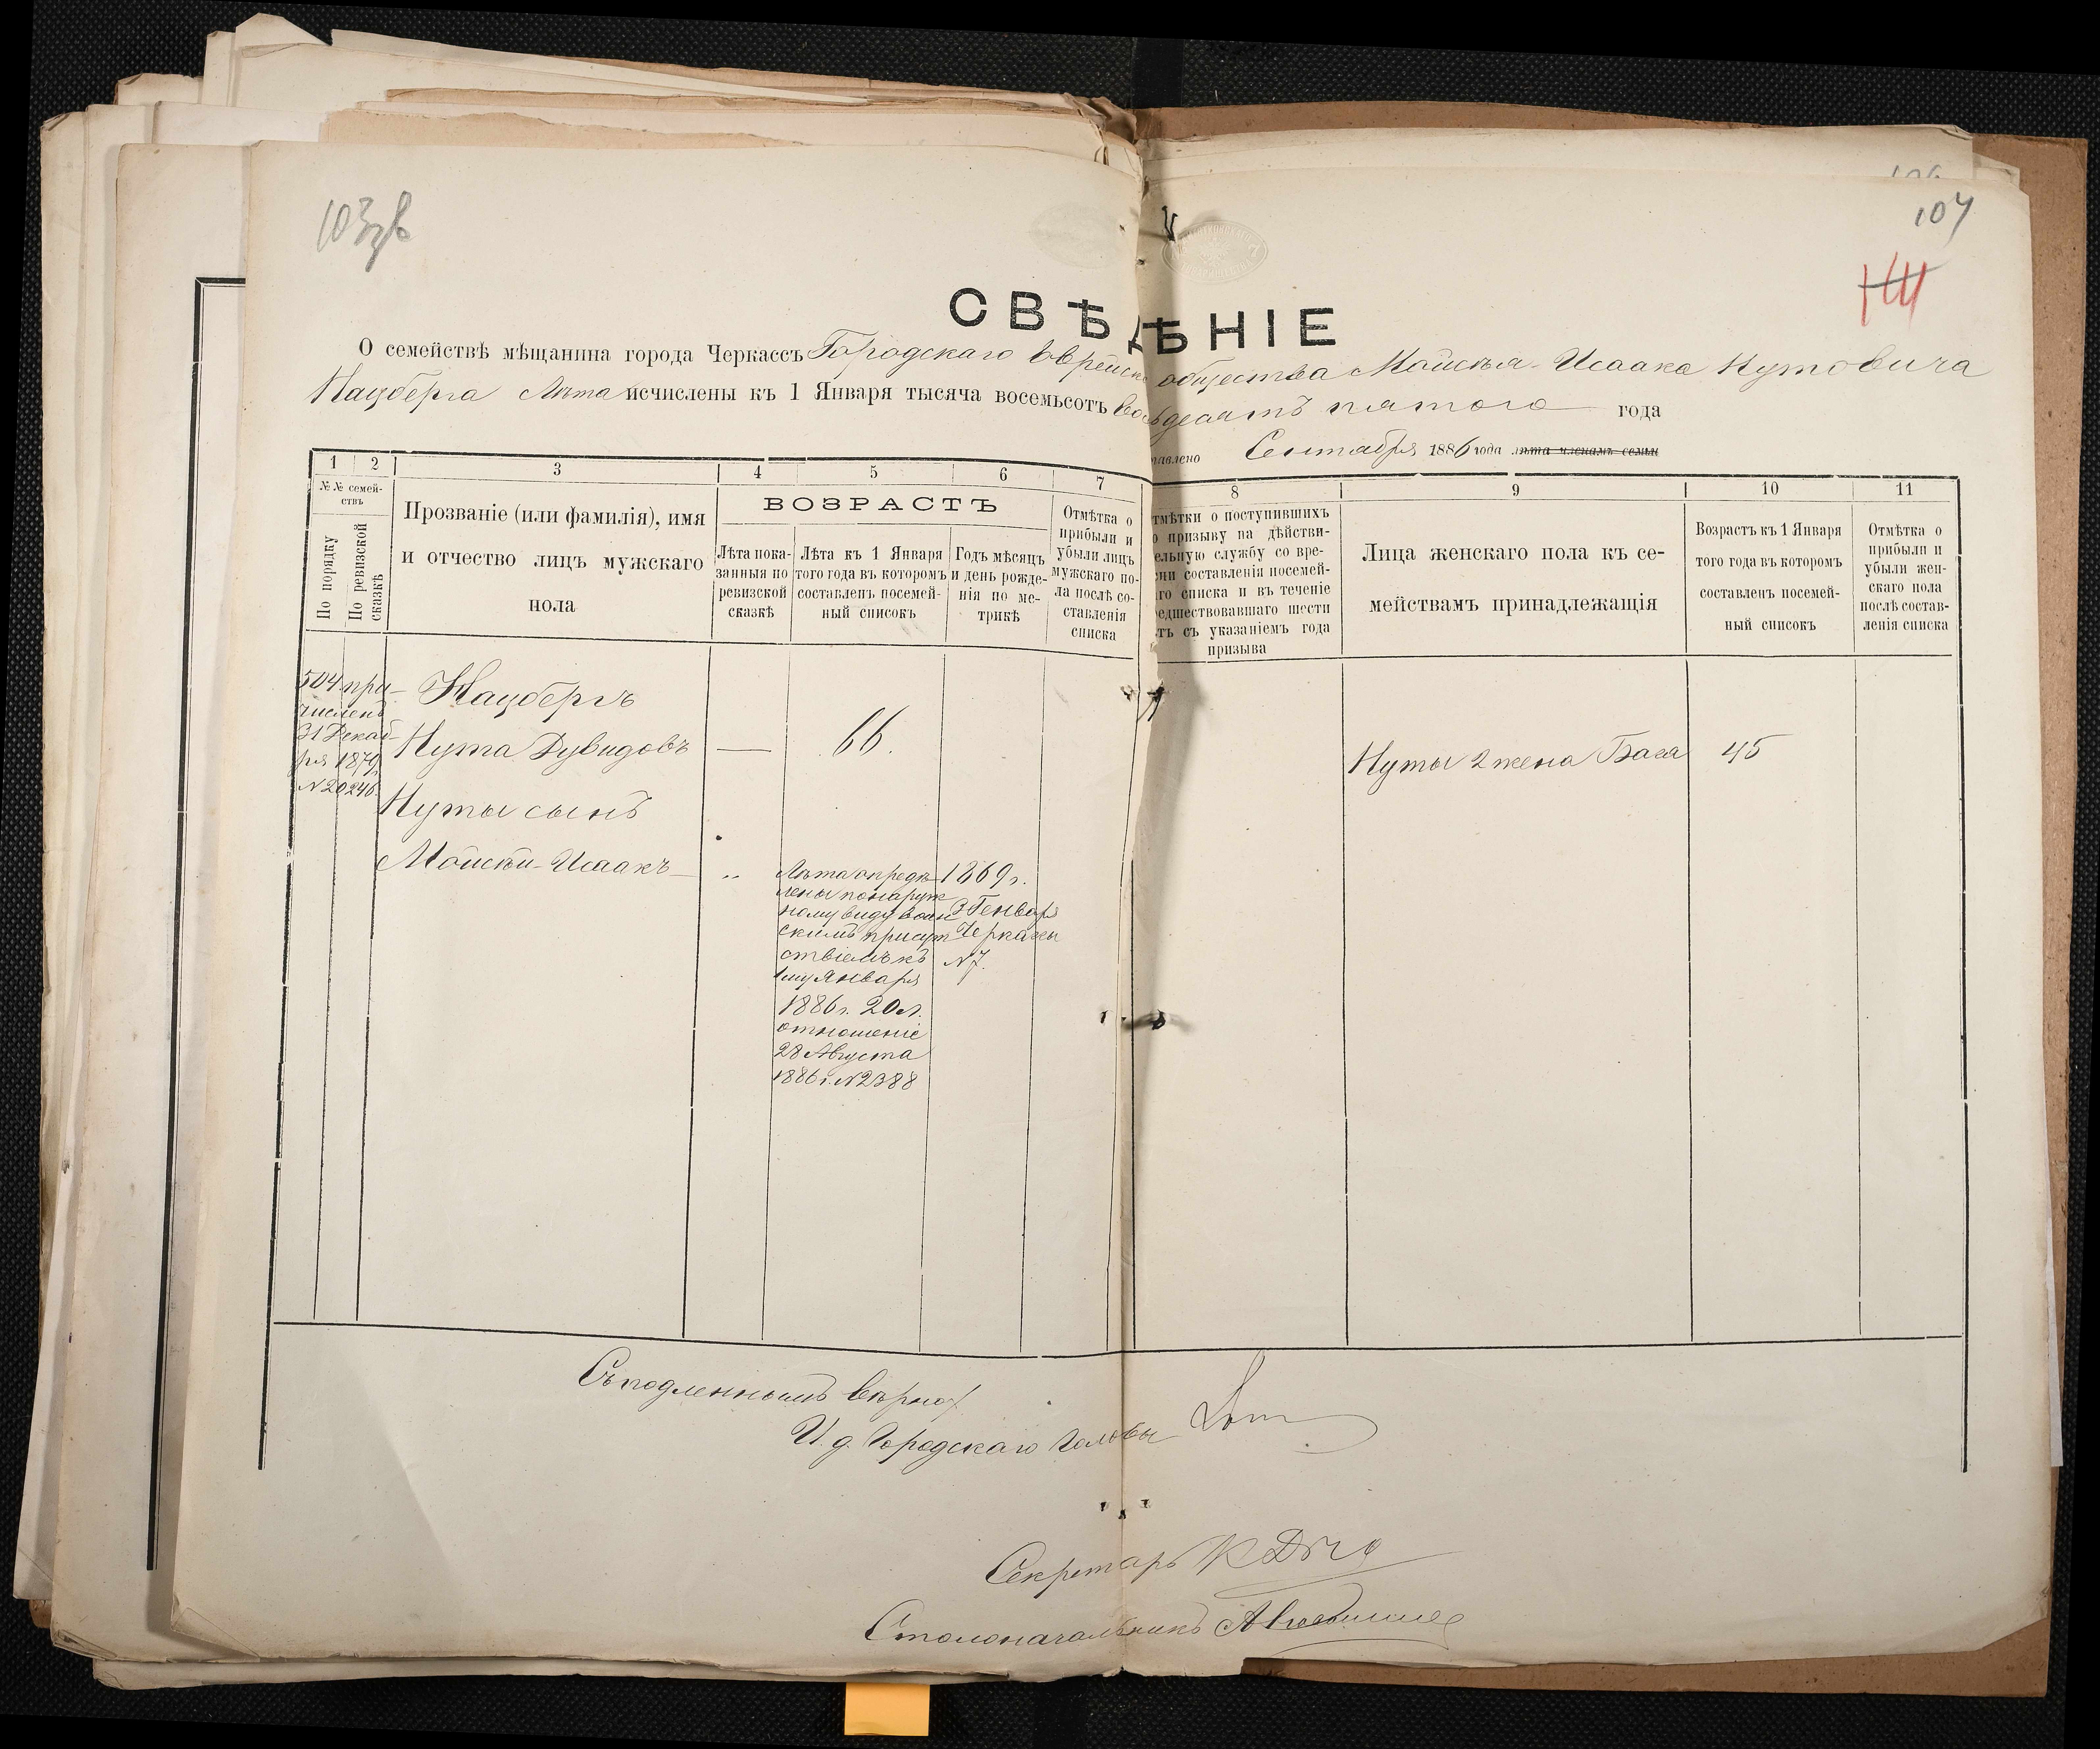 103
107
СВѢДѢНІЕ
О семействѣ мѣщанина города Черкассъ Городскаго Еврейск общества Мойсея-Исаака Нутовича
Нацберга Лѣта исчислены къ 1 Января тысяча восемьсотъ восьмьдесятъ пятого года
Сентября 1886 года лѣта членамъ семьи
1
2
3
4
5
6
7
8
9
10
11
№№ семей-
ствъ
По порядку
По ревизской
сказкѣ
Прозваніе (или фамилія), имя
и отчество лицъ мужскаго
пола
ВОЗРАСТЪ
Лѣта пока-
занныя по
ревизской
сказкѣ
Лѣта къ 1 Января
того года въ которомъ
составленъ посемей-
ный списокъ
Годъ мѣсяцъ
и день рожде-
нія по ме-
трикѣ
Отмѣтка о
прибыли и
убыли лицъ
мужскаго по-
ла послѣ со-
ставленія
списка
тмѣтки о поступившихъ
о призыву на дѣйстви-
ельную службу со вре-
ени составленія посемей-
го списка и въ теченіе
едшествовавшаго шести
ть съ указаніемъ года
призыва
Лица женскаго пола къ се-
мействамъ принадлежащія
Возрастъ къ 1 Января
того года въ которомъ
составленъ посемей-
ный списокъ
Отмѣтка о
прибыли и
убыли жен-
скаго пола
послѣ состав-
ленія списка
504 при-
численъ
31 Декаб-
ря 1879
N 20246.
Нацбергъ
Нута Дувидовъ — 66.
Нуты 2 жена Бася 45
Нуты сынъ
Мойсей-Исаакъ
Лѣта опредѣ-
лены понаруж
ному виду воин
скимъ присут
ствіемъ къ
1му Января
1886 г. 20 л.
отношеніе
28 Августа
1886 г. N 2388
1869 г.
3 Генваря
Черкассы
N 7.
Съ подленнымъ вѣрно
И. д. Городскаго Головы
Секретарь
Столоначальникъ